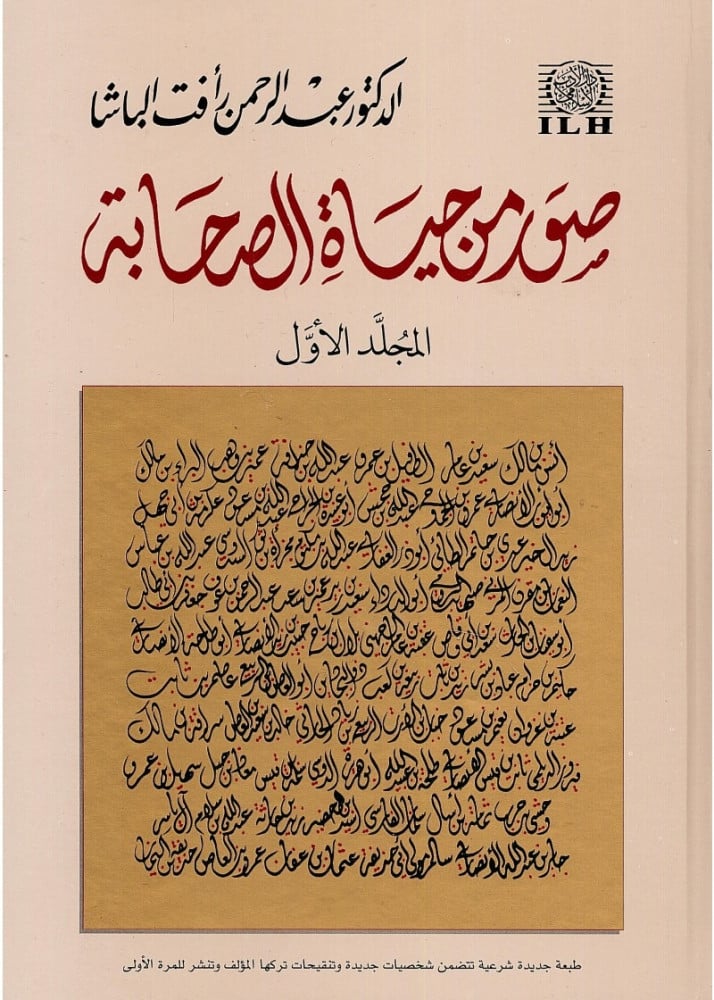 الدكتور عبد الرحمن رأفت الباشا
دار الأدب الإسلامي
ILH
صور من حياة الصحابة
المجلَّد الأوَّل
أنس بن مالك سعيد بن عامر الطفيل بن عمرو عبد الله بن حذافة عمير بن وهب البراء بن مالك
عمرو بن الجموح عبد الله بن جحش أبو عبيدة بن الجراح عبد الله بن مسعود عكرمة بن أبي جهل
زيد الخير عدي بن حاتم الطائي أبو ذر الغفاري عبد الله بن أم مكتوم مجزأة بن ثور السدوسي عبد الله بن عباس
النعمان بن مقرن المزني صهيب الرومي أبو الدرداء سعيد بن زيد عمير بن سعد عبد الرحمن بن عوف جعفر بن أبي طالب
أبو سفيان بن الحارث سعد بن أبي وقاص عقبة بن عامر الجهني بلال بن رباح حبيب بن زيد الأنصاري أبو طلحة الأنصاري
حكيم بن حزام عباد بن بشر زيد بن ثابت ربيعة بن كعب ذو البجادين أبو العاص بن الربيع عاصم بن ثابت
عتبة بن غزوان نعيم بن مسعود خباب بن الأرت الربيع بن زياد الحارثي خالد بن سعيد بن العاص سراقة بن مالك
فيروز الديلمي ثابت بن قيس الأنصاري طلحة بن عبيد الله أبو هريرة الدوسي سلمة بن قيس معاذ بن جبل سهيل بن عمرو
وحشي بن حرب ثمامة بن أثال سلمان الفارسي أسيد بن الحضير زيد بن حارثة عبد الله بن سلام آل ياسر
جابر بن عبد الله الأنصاري سالم مولى أبي حذيفة عثمان بن عفان عمرو بن العاص حذيفة بن اليمان
طبعة جديدة شرعية تتضمن شخصيات جديدة وتنقيحات تركها المؤلف وتنشر للمرة الأولى